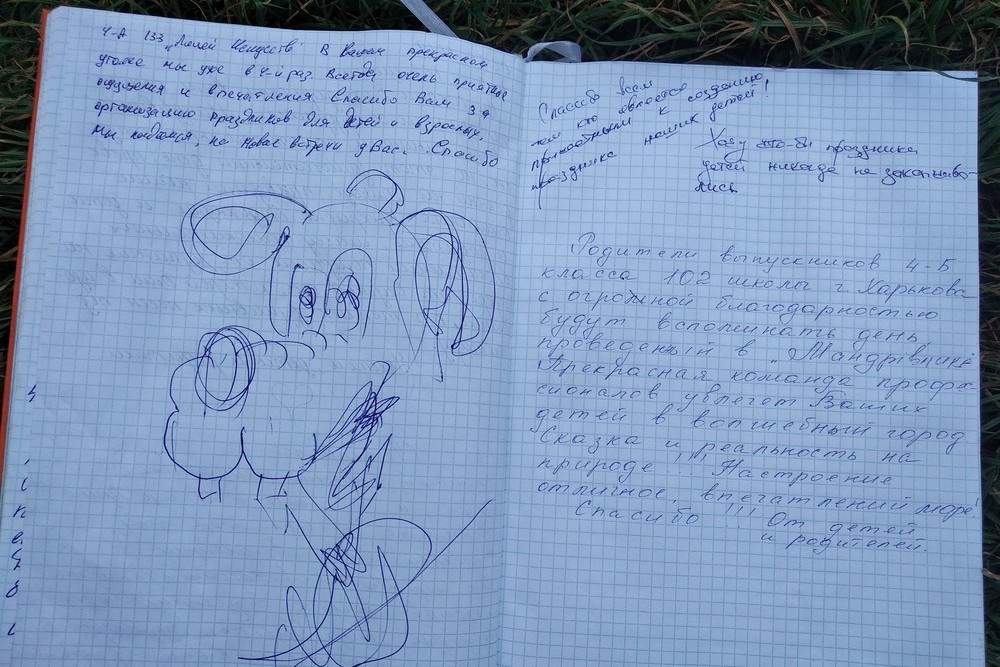 4-А 133 „Лицей Искуств" В Вашем прекрасном
уголке мы уже в 4-й раз. Всегда очень приятные
ощущения и впечатления Спасибо Вам за
организацию праздников для детей и взрослых.
Мы надеемся, на новые встречи у Вас. Спасибо
Спасибо всем
тем кто является
причастным к созданию
праздника наших детей!
Хочу что-бы праздника
детей никогда не заканчива-
лись
Родители выпускников 4-Б
класса 102 школы г. Харькова
с огромной благодарностью
будут вспоминать день
проведенный в „Мандрівнике"
Прекрасная команда профе
сионалов увлечет Ваших
детей в волшебный город
Сказка и реальность на
природе!!! Настроение
отличное, впечатлений море!
Спасибо!!! От детей
и родителей.